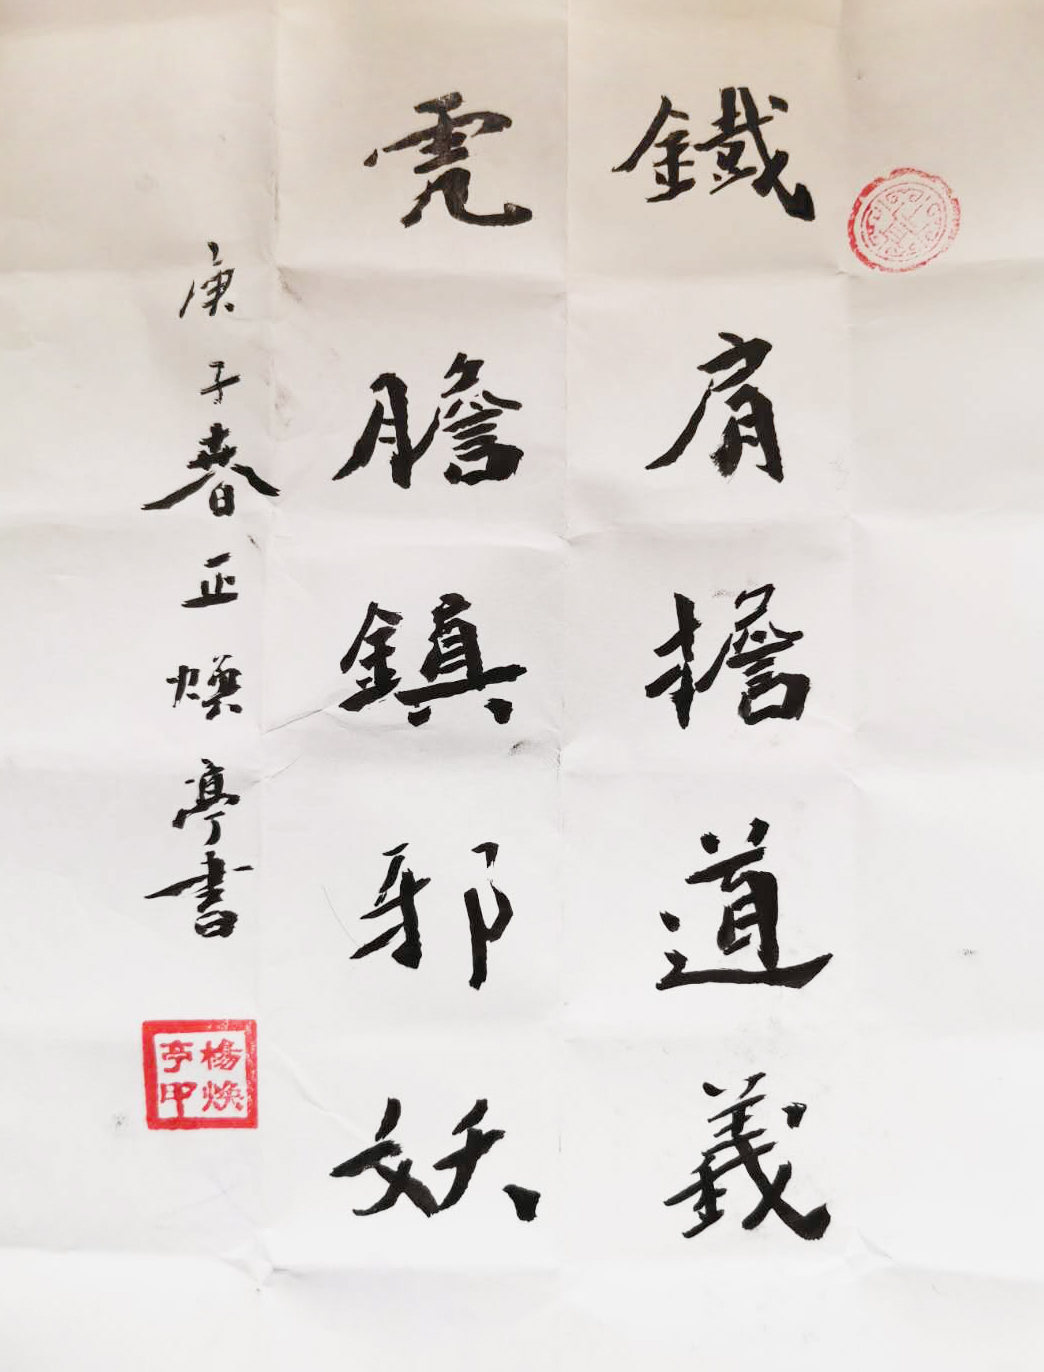 鐵肩擔道義
虎膽鎮邪妖
庚子春正煥亭書
楊煥
亭甲